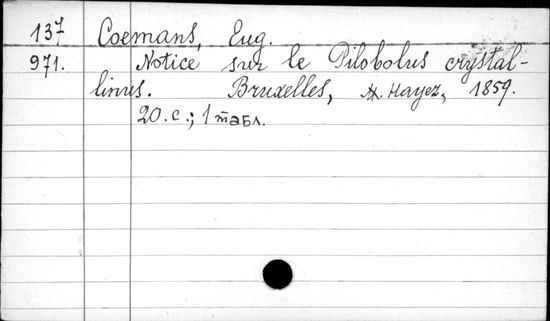 137 Coemans, Eug.
971. Notice sur le Pilobolus crystal-
linus. Bruxelles, H. Hayez, 1859.
20. с.; 1 табл.